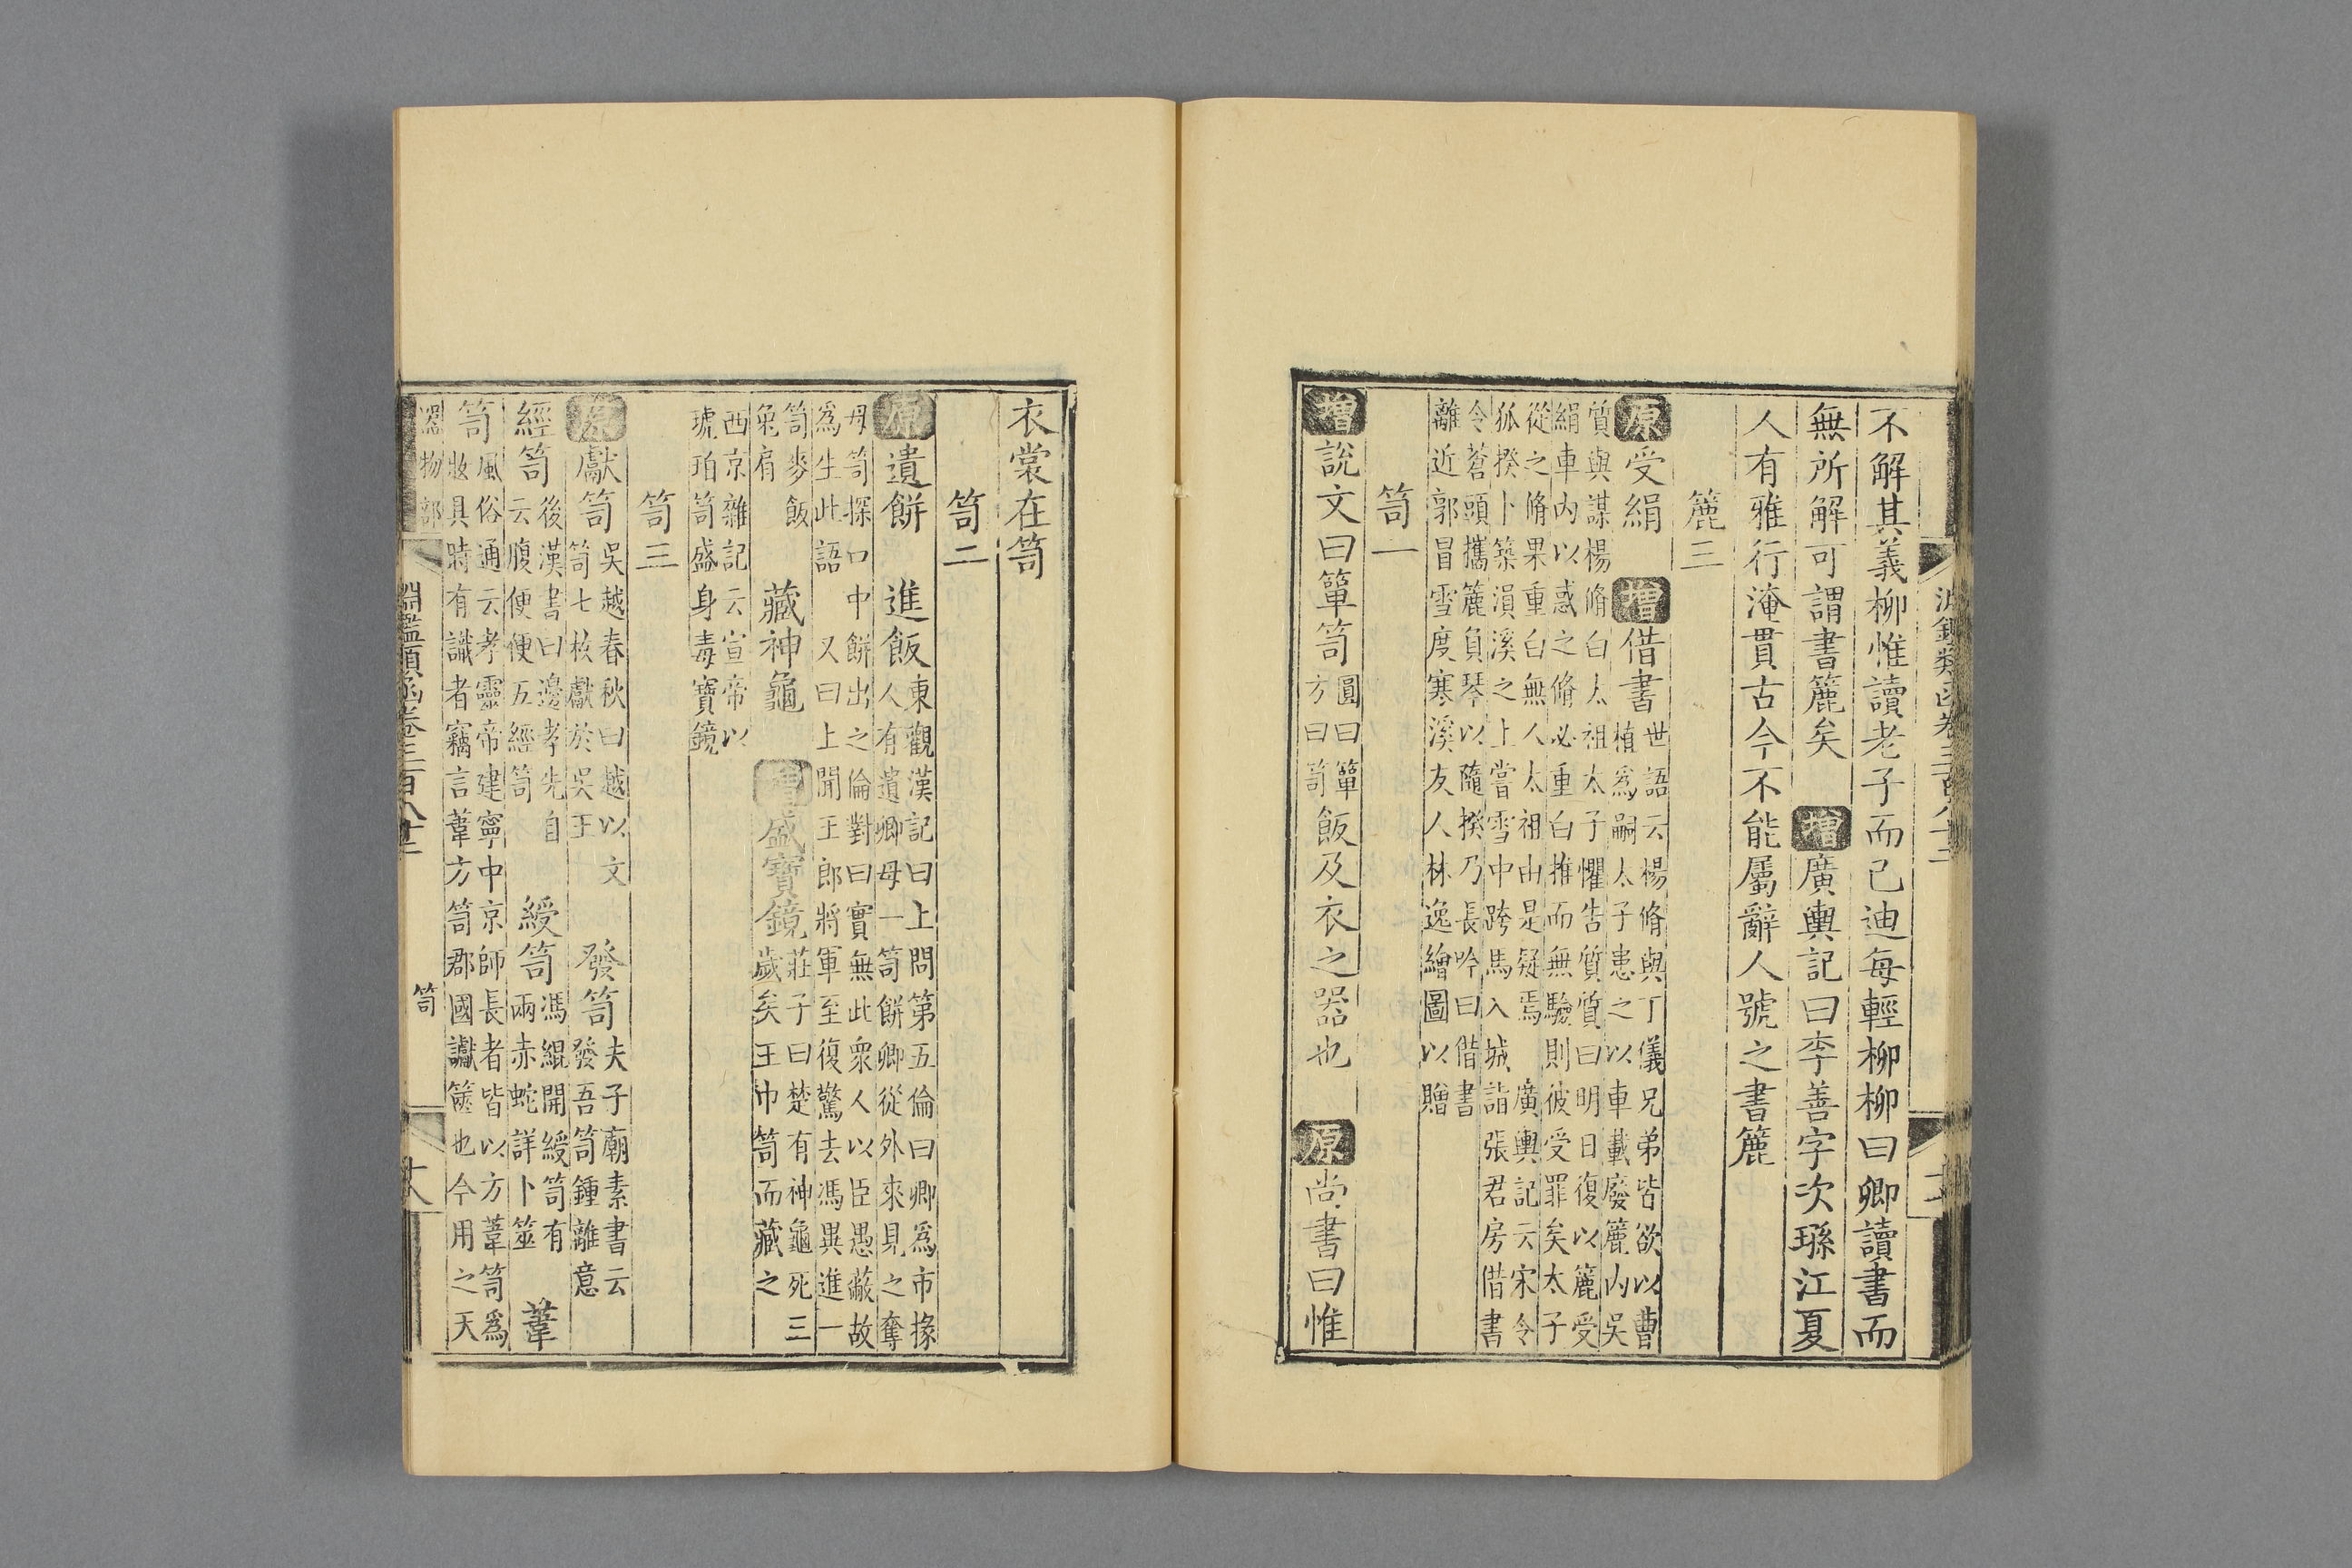 不解其義柳惟讀老子而已迪每輕柳柳曰卿讀書而
無所解可謂書簏矣 增廣輿記曰李善字次孫江夏
人有雅行淹貫古今不能屬辭人號之書簏
簏三
原受絹 增借書世語云楊脩與丁儀兄弟皆欲以曹
植爲嗣太子患之以車載廢簏內吳
質與謀楊脩白太祖太子懼告質質曰明日復以簏受
絹車內以惑之脩必重白推而無驗則彼受罪矣太子
從之脩果重白無人太祖由是疑焉 廣輿記云宋令
狐揆卜築溳溪之上嘗雪中跨馬入城詣張君房借書
令蒼頭攜簏負琴以隨揆乃長吟曰借書
離近郭冒雪度寒溪友人林逸繪圖以贈
笥一
增說文曰簞笥圓曰簞
方曰笥飯及衣之器也 原尚書曰惟
衣裳在笥
笥二
原遺餅 進飯東觀漢記曰上問第五倫曰卿爲市掾
人有遺卿母一笥餅卿從外來見之奪
母笥探口中餅出之倫對曰實無此衆人以臣愚蔽故
爲生此語 又曰上聞王郎將軍至復驚去馮異進一
笥麥飯
兔肩 藏神龜 增盛寶鏡莊子曰楚有神龜死三
歲矣王巾笥而藏之
西京雜記云宣帝以
琥珀笥盛身毒寶鏡
笥三
原獻笥吳越春秋曰越以文
笥七枚獻於吳王 發笥夫子廟素書云
發吾笥鍾離意
經笥後漢書曰邊孝先自
云腹便便五經笥 綬笥馮緄開綬笥有
兩赤蛇詳卜筮 葦
笥風俗通云孝靈帝建寧中京師長者皆以方葦笥爲
妝具時有識者竊言葦方笥郡國讞篋也今用之天
器物部
淵鑑類函卷三百八十二
笥
十八